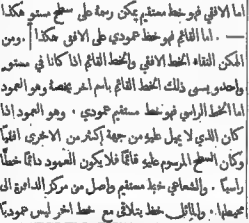 اما الافقي فهو خط مستقيم يمكن رسمه على سطح مستو هكذا
— . اما القائم فهو خط عمودي على الافق هكذا | ومن
الممكن التقاء الخط الافقي والخط القائم اذا كانا في مستو
واحد ويسمى ذلك الخط القائم باسم آخر يخصه وهو العمود
اما الخط الراسي فهو خط مستقيم عمودي . وهو العمود اذا
كان الذي لا يميل عليه من جهة اكثر من الاخرى افقيا
وكان السطح المرسوم عليه قائما فلا يكون العمود دائما خطا
راسيا . والشعاعي خط مستقيم واصل من مركز الدائرة الى
محيطها . والمائل خط يتلاقى مع خط اخر ليس عموديا